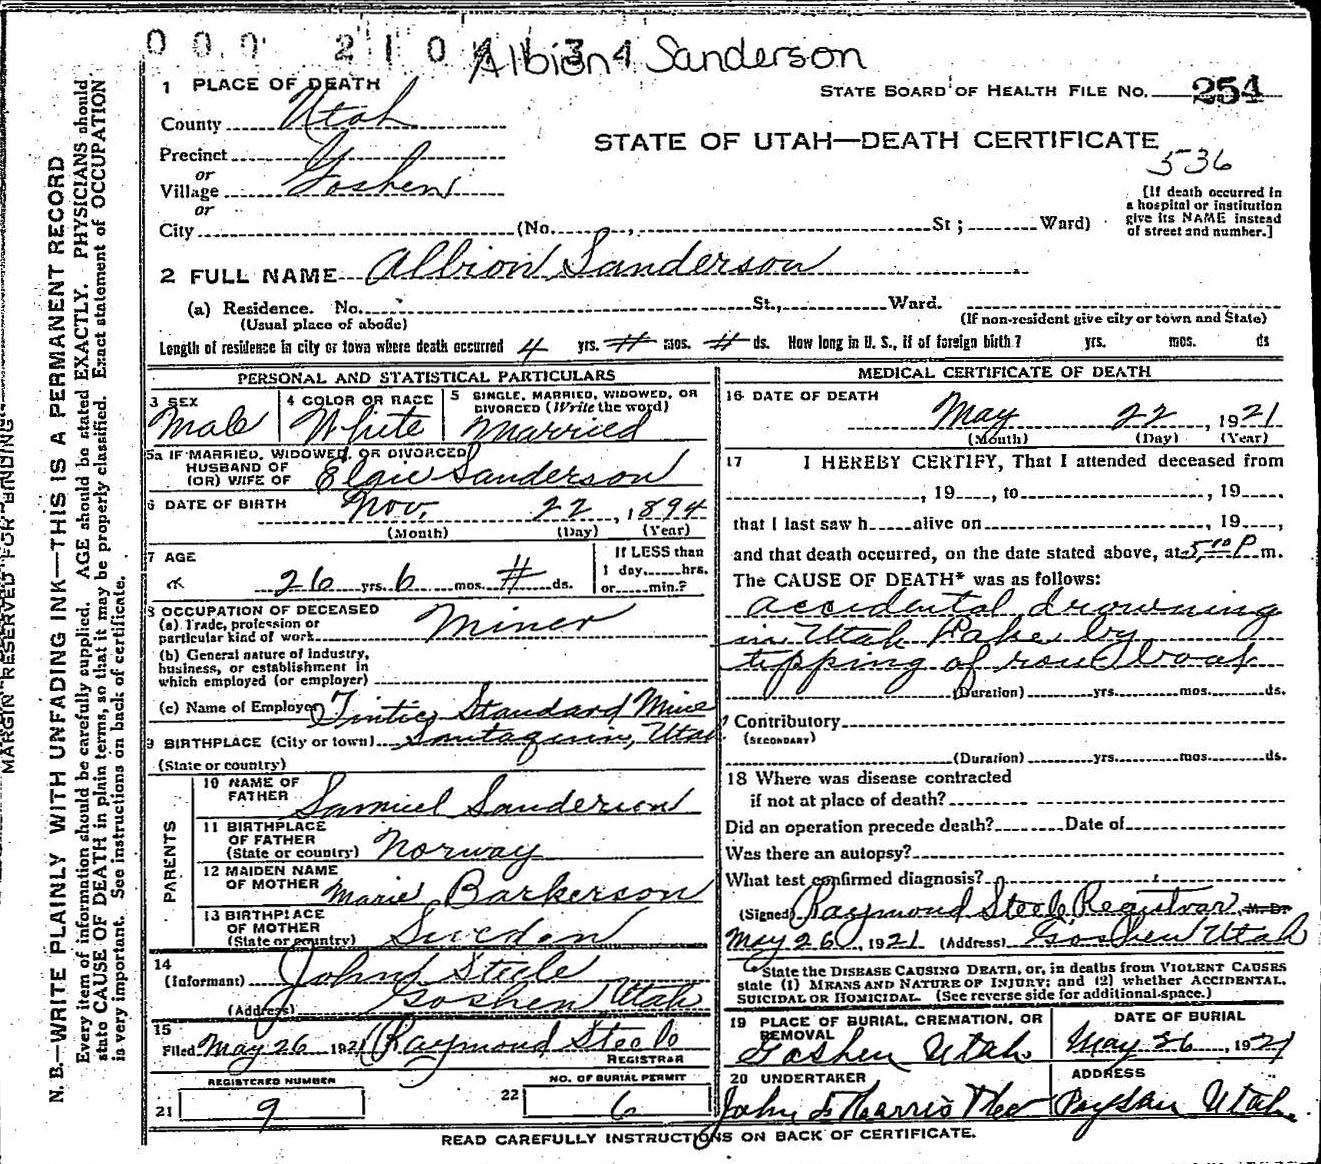 0 0 0 2 1 0 4 1 3 4
Albion Sanderson
1 PLACE OF DEATH
STATE BOARD OF HEALTH FILE NO. 254
County Utah
STATE OF UTAH—DEATH CERTIFICATE
536
Precinct
or
Village Goshen
or
City (No. , St; Ward)
[If death occurred in
a hospital or institution
give its NAME instead
of street and number.]
2 FULL NAME Albion Sanderson
(a) Residence. No. St., Ward.
(Usual place of abode)
(If non-resident give city or town and State)
Length of residence in city or town where death occurred 4 yrs. # mos. # ds. How long in U. S., if of foreign birth? yrs. mos. ds
PERSONAL AND STATISTICAL PARTICULARS
3 SEX
Male
4 COLOR OR RACE
White
5 SINGLE, MARRIED, WIDOWED, OR
DIVORCED (Write the word)
Married
5a IF MARRIED, WIDOWED, OR DIVORCED
HUSBAND OF
(OR) WIFE OF Elsie Sanderson
6 DATE OF BIRTH Nov. 22, 1894
(Month) (Day) (Year)
7 AGE
26 yrs. 6 mos. # ds.
If LESS than
1 day, hrs.
or min.?
8 OCCUPATION OF DECEASED
(a) Trade, profession or
particular kind of work Miner
(b) General nature of industry,
business, or establishment in
which employed (or employer)
(c) Name of Employer Tintic Standard Mine
9 BIRTHPLACE (City or town) Santaquin, Utah
(State or country)
PARENTS
10 NAME OF
FATHER Samuel Sanderson
11 BIRTHPLACE
OF FATHER
(State or country) Norway
12 MAIDEN NAME
OF MOTHER Marie Barkerson
13 BIRTHPLACE
OF MOTHER
(State or country) Sweden
14
(Informant) John Steele
(Address) Goshen Utah
15
Filed May 26 1921 Raymond Steele
REGISTRAR
REGISTERED NUMBER
21 9
NO. OF BURIAL PERMIT
22 6
MEDICAL CERTIFICATE OF DEATH
16 DATE OF DEATH
May 22, 1921
(Month) (Day) (Year)
17 I HEREBY CERTIFY, That I attended deceased from
, 19 , to , 19 ,
that I last saw h alive on , 19 ,
and that death occurred, on the date stated above, at 5 10 P m.
The CAUSE OF DEATH* was as follows:
accidental drowning
in Utah Lake by
tipping of row boat
(Duration) yrs. mos. ds.
Contributory
(SECONDARY)
(Duration) yrs. mos. ds.
18 Where was disease contracted
if not at place of death?
Did an operation precede death? Date of
Was there an autopsy?
What test confirmed diagnosis?
(Signed) Raymond Steele Registrar, M. D.
May 26, 1921 (Address) Goshen Utah
*State the DISEASE CAUSING DEATH, or, in deaths from VIOLENT CAUSES
state (1) MEANS AND NATURE OF INJURY; and (2) whether ACCIDENTAL,
SUICIDAL OR HOMICIDAL. (See reverse side for additional space.)
19 PLACE OF BURIAL, CREMATION, OR
REMOVAL
Goshen Utah
DATE OF BURIAL
May 26, 1921
20 UNDERTAKER
John Harris
ADDRESS
Payson Utah
READ CAREFULLY INSTRUCTIONS ON BACK OF CERTIFICATE.
MARGIN RESERVED FOR BINDING
N. B.—WRITE PLAINLY WITH UNFADING INK—THIS IS A PERMANENT RECORD
Every item of information should be carefully supplied. AGE should be stated EXACTLY. PHYSICIANS should
state CAUSE OF DEATH in plain terms, so that it may be properly classified. Exact statement of OCCUPATION
is very important. See instructions on back of certificate.